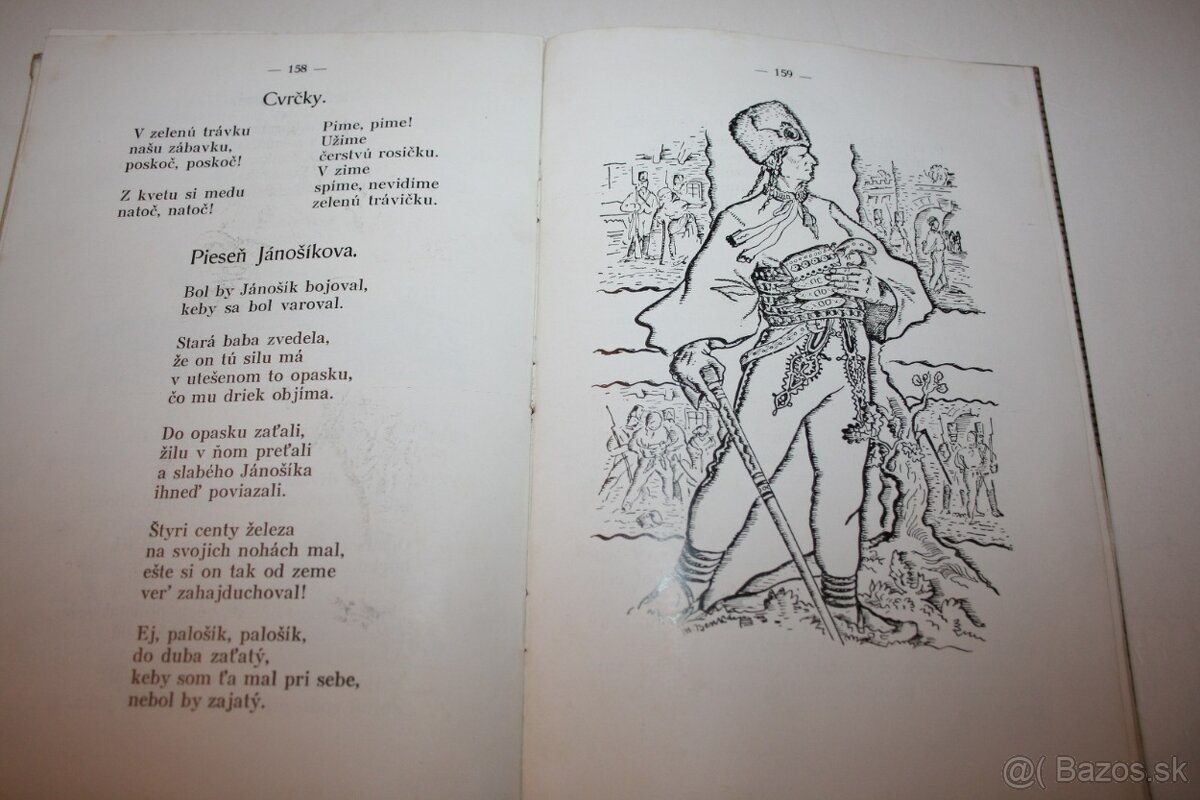 — 158 —
Cvrčky.
V zelenú trávku
našu zábavku,
poskoč, poskoč!
Z kvetu si medu
natoč, natoč!
Pime, pime!
Užime
čerstvú rosičku.
V zime
spíme, nevidíme
zelenú trávičku.
Pieseň Jánošíkova.
Bol by Jánošík bojoval,
keby sa bol varoval.
Stará baba zvedela,
že on tú silu má
v utešenom to opasku,
čo mu driek objíma.
Do opasku zaťali,
žilu v ňom preťali
a slabého Jánošíka
ihneď poviazali.
Štyri centy železa
na svojich nohách mal,
ešte si on tak od zeme
ver' zahajduchoval!
Ej, palošík, palošík,
do duba zaťatý,
keby som ťa mal pri sebe,
nebol by zajatý.
— 159 —
@( Bazos.sk